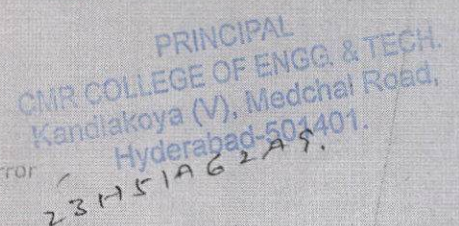 PRINCIPAL
CMR COLLEGE OF ENGG. & TECH.
Kandlakoya (V), Medchal Road,
Hyderabad-501401.
23H51A62A5.